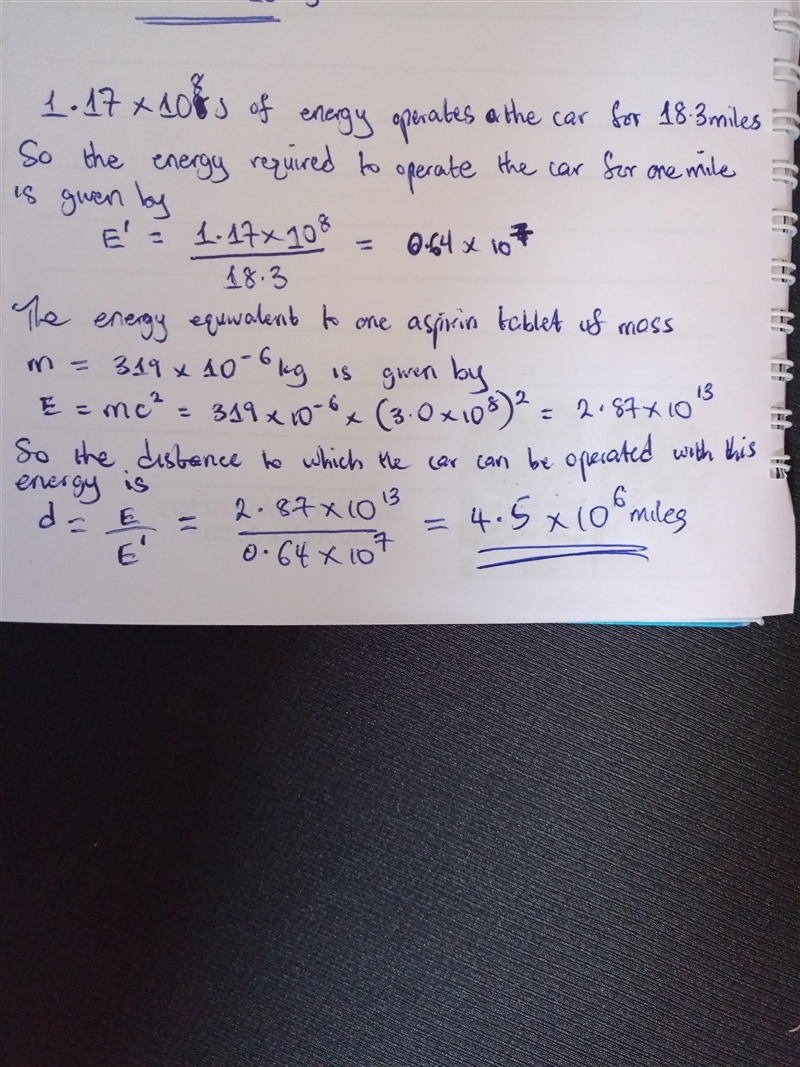 1.17 × 10⁸ J of energy operates the car for 18.3 miles
So the energy required to operate the car for one mile
is given by
E' = 1.17 × 10⁸ / 18.3 = 0.64 × 10⁷
The energy equivalent to one aspirin tablet of mass
m = 319 × 10⁻⁶ kg is given by
E = mc² = 319 × 10⁻⁶ × (3.0 × 10⁸)² = 2.87 × 10¹³
So the distance to which the car can be operated with this
energy is
d = E / E' = 2.87 × 10¹³ / 0.64 × 10⁷ = 4.5 × 10⁶ miles